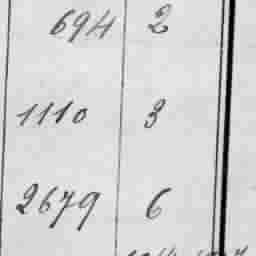 694 2
1110 3
2679 6